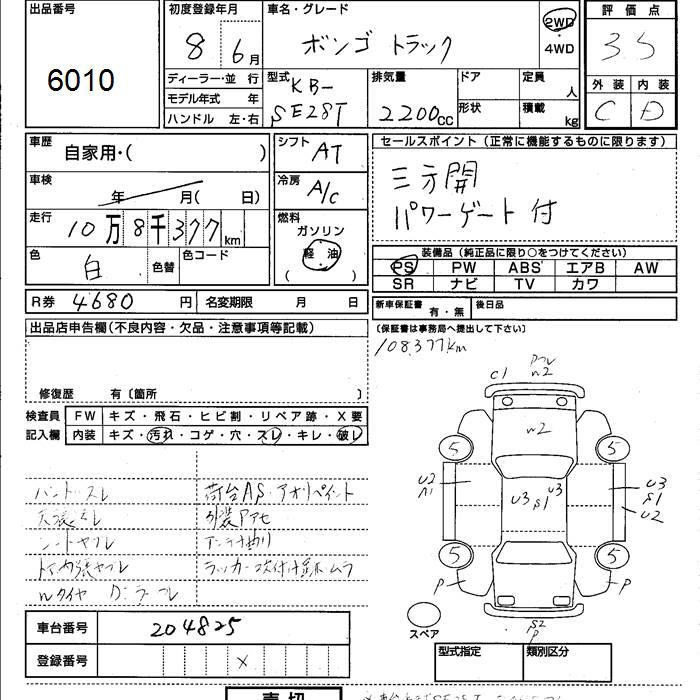 出品番号
6010
初度登録年月
8 6月
車名・グレード
ボンゴ トラック
2WD
・
4WD
評価点
3.5
外装 内装
C D
ディーラー・並 行
モデル年式 年
ハンドル 左・右
型式
KB-
SE28T
排気量
2200cc
ドア
形状
定員
人
積載
kg
車歴
自家用・( )
シフト
AT
セールスポイント (正常に機能するものに限ります)
三方開
パワーゲート付
車検
年 月( 日)
冷房
A/c
走行
10万8千377km
燃料
ガソリン
軽油
( )
色
白
色替
色コード
装備品 (純正品に限り○をつけてください)
PS PW ABS エアB AW
SR ナビ TV カワ
R券 4680 円
名変期限 月 日
新車保証書
有・無
後日品
(保証書は事務局へ提出して下さい)
108,377km
出品店申告欄(不良内容・欠品・注意事項等記載)
修復歴 有〔箇所 〕
検査員
記入欄
FW キズ・飛石・ヒビ割・リペア跡・X要
内装 キズ・汚れ・コゲ・穴・スレ・キレ・破レ
ハンドルスレ
天張ヨレ
シートヤブレ
荷台AS・アオリペイント
外装アアセ
アンテナ曲り
C1
W2
W2
5
5
U2
A1
U3
S1
U3
U3
S1
U2
5
5
P
P
S2
P
スペア
車台番号 204825
登録番号 X
型式指定
類別区分
売切